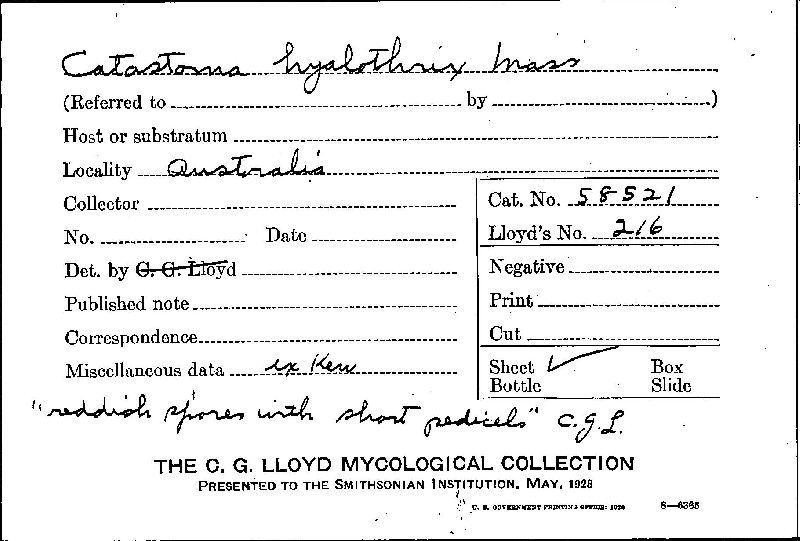 Catastoma hyalothrix Mass
(Referred to by )
Host or substratum
Locality Australia
Collector
No. Date
Det. by C. G. Lloyd
Published note
Correspondence
Miscellaneous data ex Kew
Cat. No. 58521
Lloyd's No. 216
Negative
Print
Cut
Sheet ✓ Box
Bottle Slide
"reddish spores with short pedicels" C.G.L.
THE C. G. LLOYD MYCOLOGICAL COLLECTION
PRESENTED TO THE SMITHSONIAN INSTITUTION, MAY, 1928
U. S. GOVERNMENT PRINTING OFFICE: 1928 8—6365